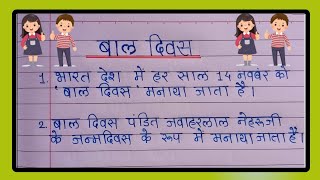 बाल दिवस
1. भारत देश में हर साल 14 नवंबर को
'बाल दिवस' मनाया जाता है।
2. बाल दिवस पंडित जवाहरलाल नेहरूजी
के जन्मदिवस के रूप में मनाया जाता है।